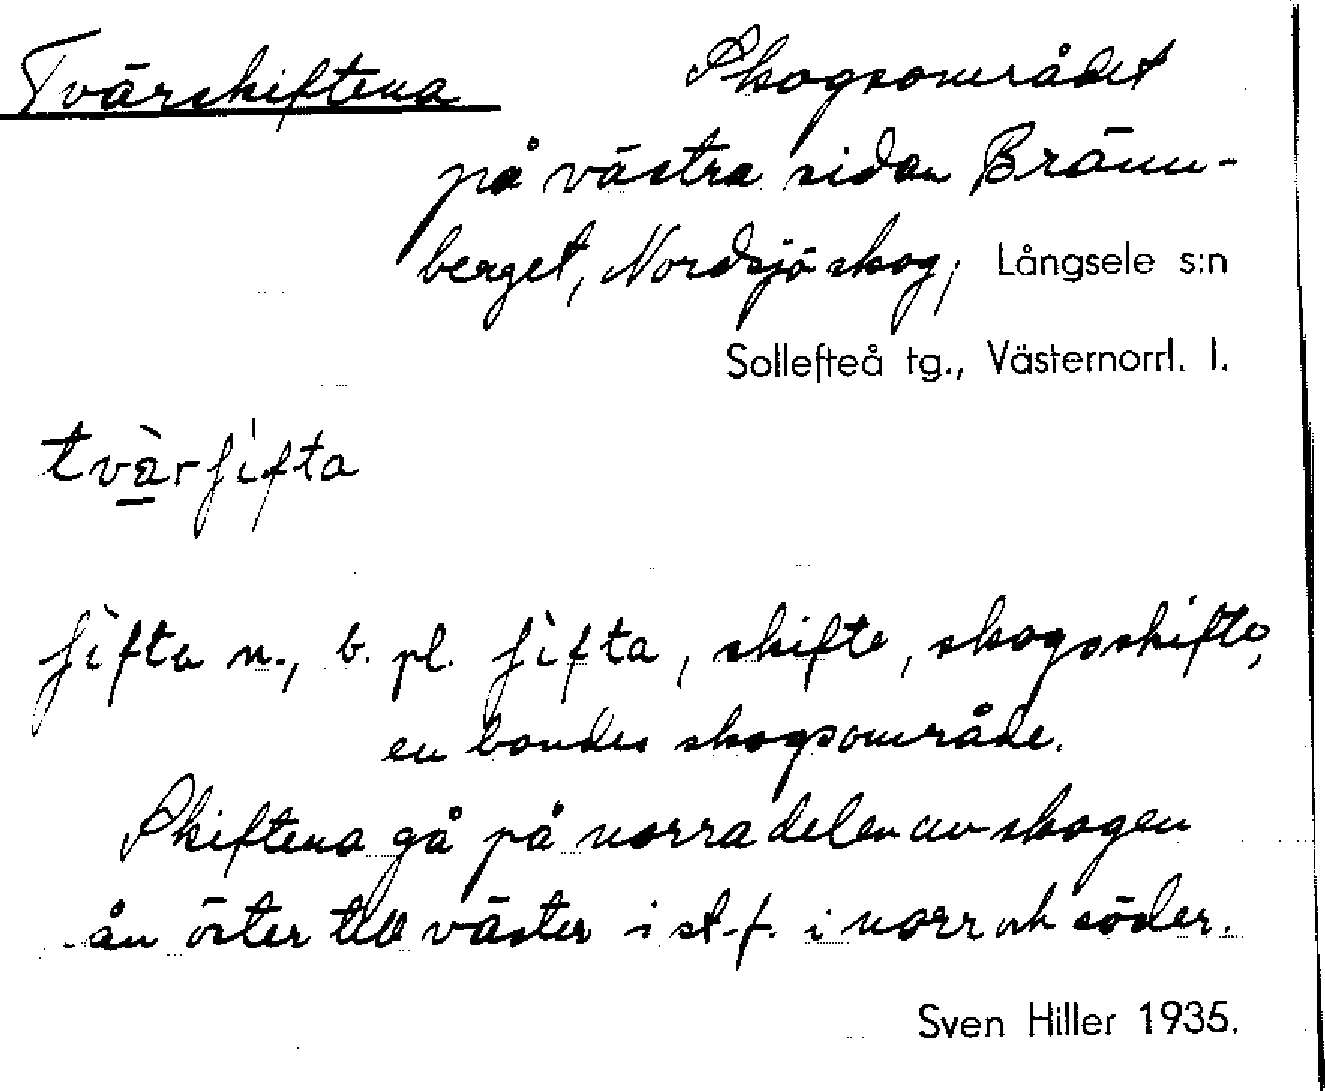 Tvärskiftena Skogsområdet
på västra sidan Bränn-
berget, Nordsjö skog, Långsele s:n
Sollefteå tg., Västernorrl. l.
tvä̀rʃìfta
ʃìfta n., b. pl. ʃìfta, skifte, skogsskifte,
en bondes skogsområde.
Skiftena gå på norra delen av skogen
ån öster till väster i st. f. i norr och söder.
Sven Hiller 1935.